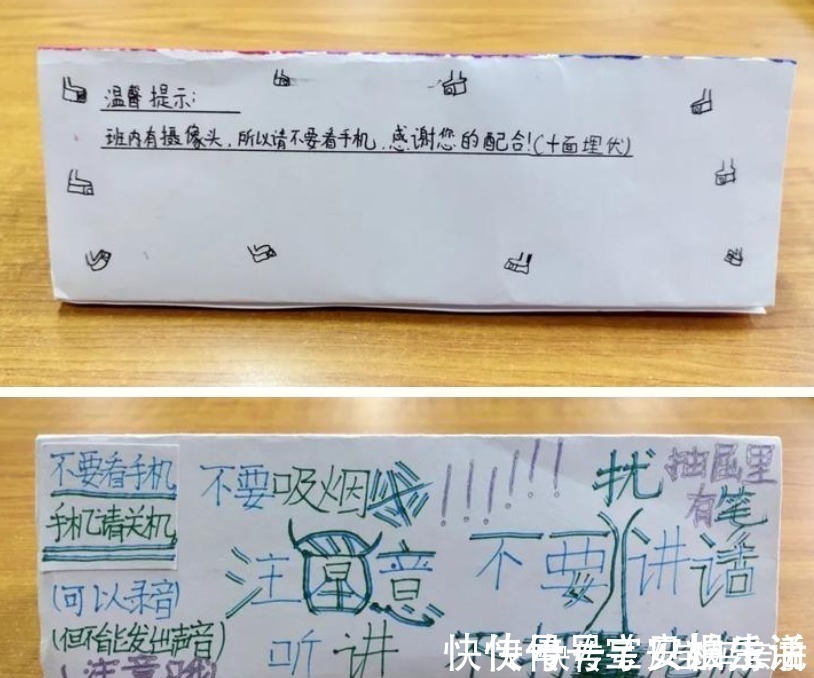 温馨提示:
班内有摄像头,所以请不要看手机,感谢您的配合!(十面埋伏)
不要看手机
手机请关机
(可以录音)
(但不能发出声音)
(注意哦)
不要吸烟
!!!!!!
扰
抽屉里
有笔
注意
不要讲话
听讲